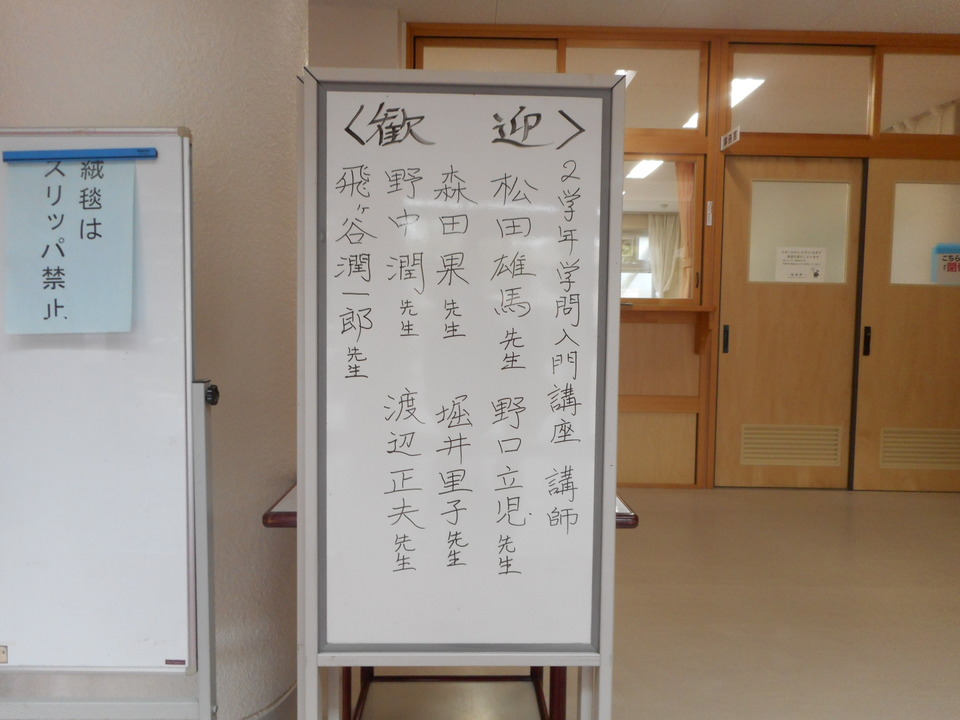 〈歓 迎〉
2学年学問入門講座 講師
松田雄馬先生 野口立児先生
森田果先生 堀井里子先生
野中潤先生 渡辺正夫先生
飛ヶ谷潤一郎先生
絨毯は
スリッパ禁止
こちら